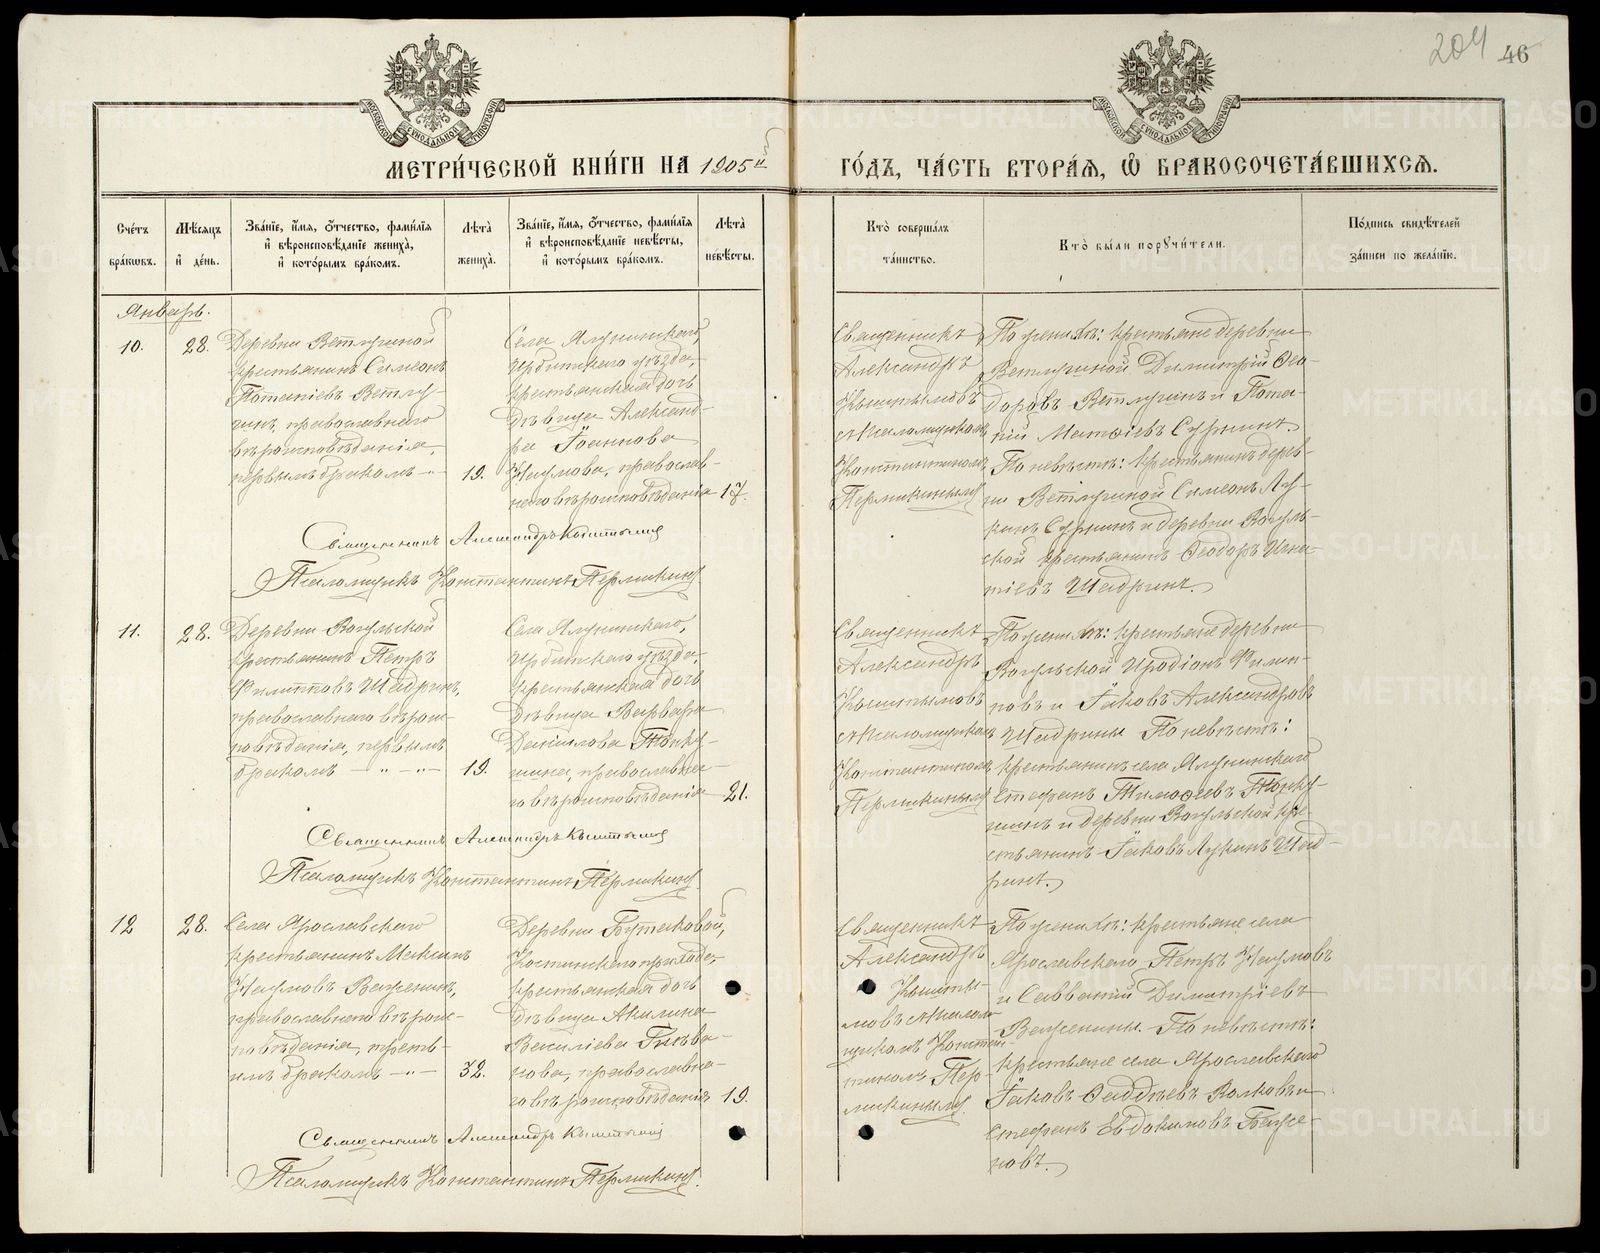 204 46
МЕТРИ́ЧЕСКОЙ КНИ́ГИ НА 1905й ГО́ДЪ, ЧА́СТЬ ВТОРА́Я, Ѽ БРАКОСОЧЕТА́ВШИХСЯ.
МОСКОВСКОЙ СѴНОДАЛЬНОЙ ТИПОГРАФІИ
МОСКОВСКОЙ СѴНОДАЛЬНОЙ ТИПОГРАФІИ
Сче́тъ
бра́кωвъ.
Мѣ́сяцъ
и҆ де́нь.
Зва́нїе, и҆́мя, ѻ҆́тчество, фами́лїя
и҆ вѣроисповѣ́данїе жениха̀,
и҆ кото́рымъ бра́комъ.
Лѣ́та̀
жениха̀.
Зва́нїе, и҆́мя, ѻ҆́тчество, фами́лїя
и҆ вѣроисповѣ́данїе невѣ́сты,
и҆ кото́рымъ бра́комъ.
Лѣ́та̀
невѣ́сты.
Кто̀ соверша́лъ
та́инство.
Кто̀ бы́ли пορꙋчи́тели.
По́дпись свидѣ́телей
за́писи по жела́нїю.
Январь.
10.
28.
Деревни Ветлугиной
крестьянинъ Симеонъ
Потапіевъ Ветлу-
гинъ, православнаго
вѣроисповѣданія,
первымъ бракомъ - " -
19.
Села
Ирбитскаго уѣзда,
крестьянская дочь
дѣвица Александ-
ра Іоаннова
Наумова, православ-
наго вѣроисповѣданія
17.
Священникъ
Александръ
Кыштымовъ
съ псаломщикомъ
Константиномъ
Пермикинымъ
По женихѣ: крестьяне деревни
Ветлугиной Димитрій Ѳео-
доровъ Ветлугинъ и Пота-
пій Матѳіевъ Сурнинъ.
По невѣстѣ: крестьянинъ дерев-
ни Ветлугиной Симеонъ Лу-
кинъ Сурнинъ и деревни Вогуль-
ской крестьянинъ Ѳеодоръ Игна-
тіевъ Шадринъ.
Священникъ Александръ Кыштымовъ
Псаломщикъ Константинъ Пермикинъ.
11.
28.
Деревни Вогульской
крестьянинъ Петръ
Филипповъ Шадринъ,
православнаго вѣроис-
повѣданія, первымъ
бракомъ - " - " -
19.
Села
Ирбитскаго уѣзда,
крестьянская дочь
дѣвица Варвара
Даніилова Топку-
шина, православна-
го вѣроисповѣданія
21.
Священникъ
Александръ
Кыштымовъ
съ псаломщикомъ
Константиномъ
Пермикинымъ
По женихѣ: крестьяне деревни
Вогульской Иродіонъ Филип-
повъ и Іаковъ Александровъ
Шадрины. По невѣстѣ:
крестьянинъ села
Стефанъ Тимоѳеевъ Топку-
шинъ и деревни Вогульской кре-
стьянинъ Іаковъ Лукинъ Шад-
ринъ.
Священникъ Александръ Кыштымовъ
Псаломщикъ Константинъ Пермикинъ.
12
28.
Села Ярославскаго
крестьянинъ Максимъ
Наумовъ Важенинъ,
православнаго вѣроис-
повѣданія, треть-
имъ бракомъ - " -
32.
Деревни Бутаковой,
Костинскаго прихода,
крестьянская дочь
дѣвица Акилина
Василіева Гнѣва-
нова, православна-
го вѣроисповѣданія
19.
Священникъ
Александръ
Кышты-
мовъ съ псалом-
щикомъ Констан-
тиномъ Пер-
микинымъ.
По женихѣ: крестьяне села
Ярославскаго Петръ Наумовъ
и Савватій Димитріевъ
Важенины. По невѣстѣ:
крестьяне села Ярославскаго
Іаковъ Ѳаддѣевъ Волковъ и
Стефанъ Евдокимовъ Баже-
новъ.
Священникъ Александръ Кыштымовъ
Псаломщикъ Константинъ Пермикинъ.
METRIKI.GASO-URAL.RU